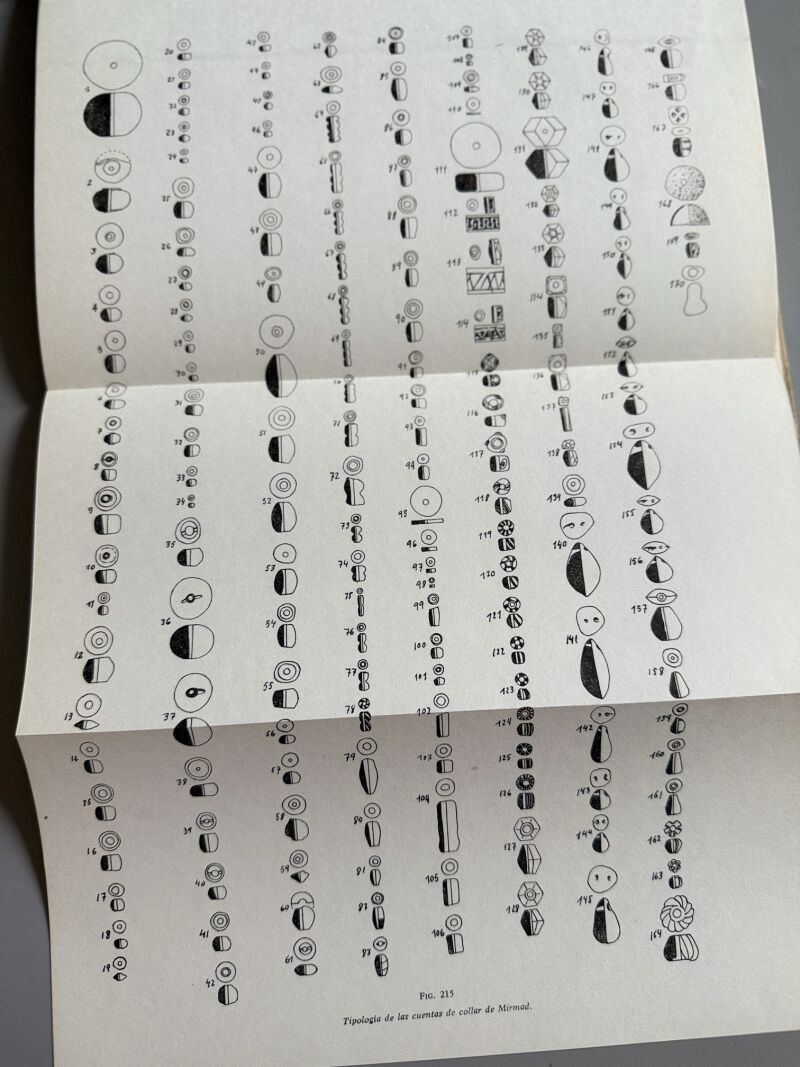 1
2
3
4
5
6
7
8
9
10
11
12
13
14
15
16
17
18
19
20
21
22
23
24
25
26
27
28
29
30
31
32
33
34
35
36
37
38
39
40
41
42
43
44
45
46
47
48
49
50
51
52
53
54
55
56
57
58
59
60
61
62
63
64
65
66
67
68
69
70
71
72
73
74
75
76
77
78
79
80
81
82
83
84
85
86
87
88
89
90
91
92
93
94
95
96
97
98
99
100
101
102
103
104
105
106
107
108
109
110
111
112
113
114
115
116
117
118
119
120
121
122
123
124
125
126
127
128
129
130
131
132
133
134
135
136
137
138
139
140
141
142
143
144
145
146
147
148
149
150
151
152
153
154
155
156
157
158
159
160
161
162
163
164
165
166
167
168
169
170
FIG. 215
Tipología de las cuentas de collar de Mirmad.